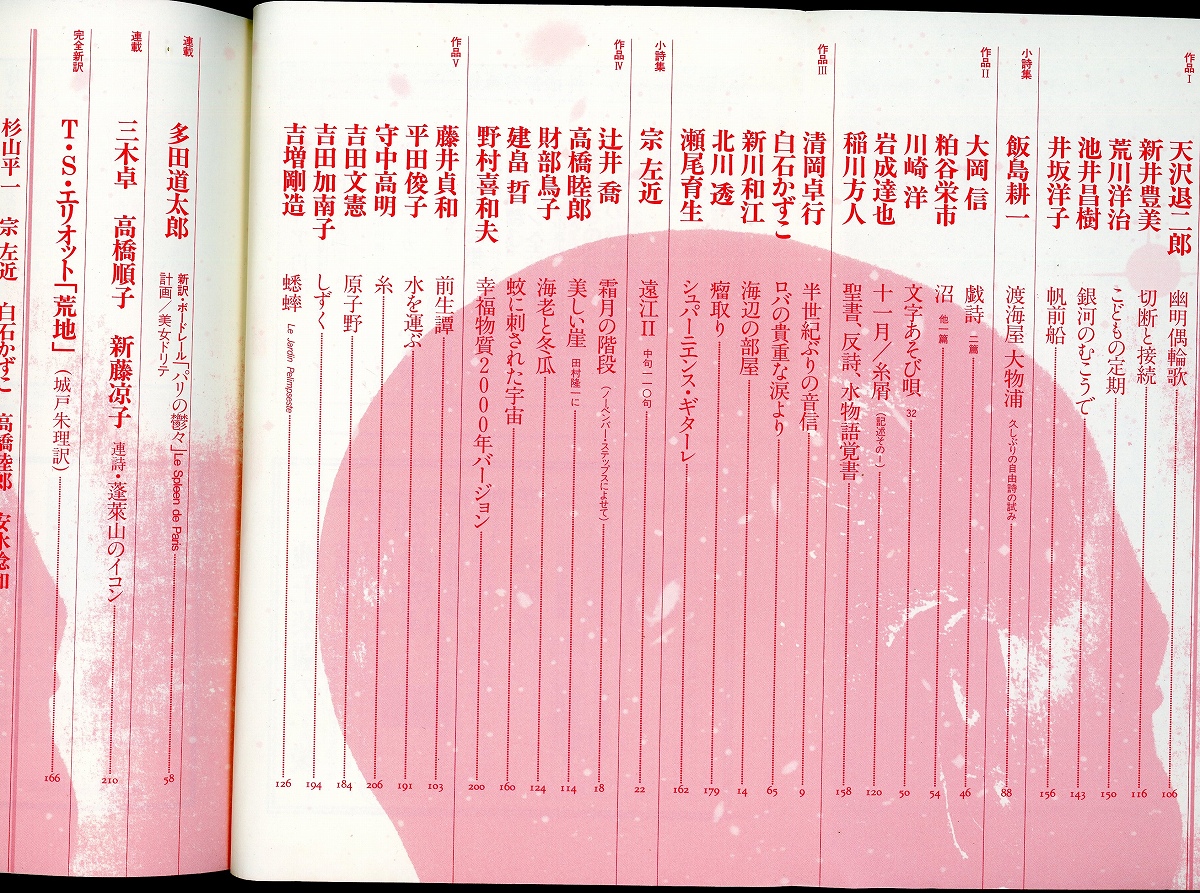 作品I
天沢退二郎 幽明偶輪歌 106
新井豊美 切断と接続 116
荒川洋治 こどもの定期 150
池井昌樹 銀河のむこうで 143
井坂洋子 帆前船 156
小詩集
飯島耕一 渡海屋 大物浦 久しぶりの自由詩の試み 88
作品II
大岡 信 戯詩 二篇 46
粕谷栄市 沼 他一篇 54
川崎 洋 文字あそび唄 32 50
岩成達也 十一月／糸屑(記述その一) 120
稲川方人 聖書、反詩、水物語覚書 158
作品III
清岡卓行 半世紀ぶりの音信 9
白石かずこ ロバの貴重な涙より 65
新川和江 海辺の部屋 14
北川 透 瘤取り 179
瀬尾育生 シュパーニエンス・ギターレ 162
小詩集
宗 左近 遠江II 中句一一〇句 22
作品IV
辻井 喬 霜月の階段 (ノーベンバー・ステップスによせて) 18
高橋睦郎 美しい崖 田村隆一に 114
財部鳥子 海老と冬瓜 124
建畠 晢 蚊に刺された宇宙 160
野村喜和夫 幸福物質2000年バージョン 200
作品V
藤井貞和 前生譚 103
平田俊子 水を運ぶ 191
守中高明 糸 206
吉田文憲 原子野 184
吉田加南子 しずく 194
吉増剛造 蟋蟀 Le Jardin Pelimpseste 126
連載
多田道太郎 新訳・ボードレール「パリの鬱々」Le Spleen de Paris 58
計画／美女ドリテ
連載
三木卓 高橋順子 新藤凉子 連詩・蓬萊山のイコン 210
完全新訳
T・S・エリオット「荒地」(城戸朱理訳) 166
杉山平一 宗 左近 白石かずこ 高橋睦郎